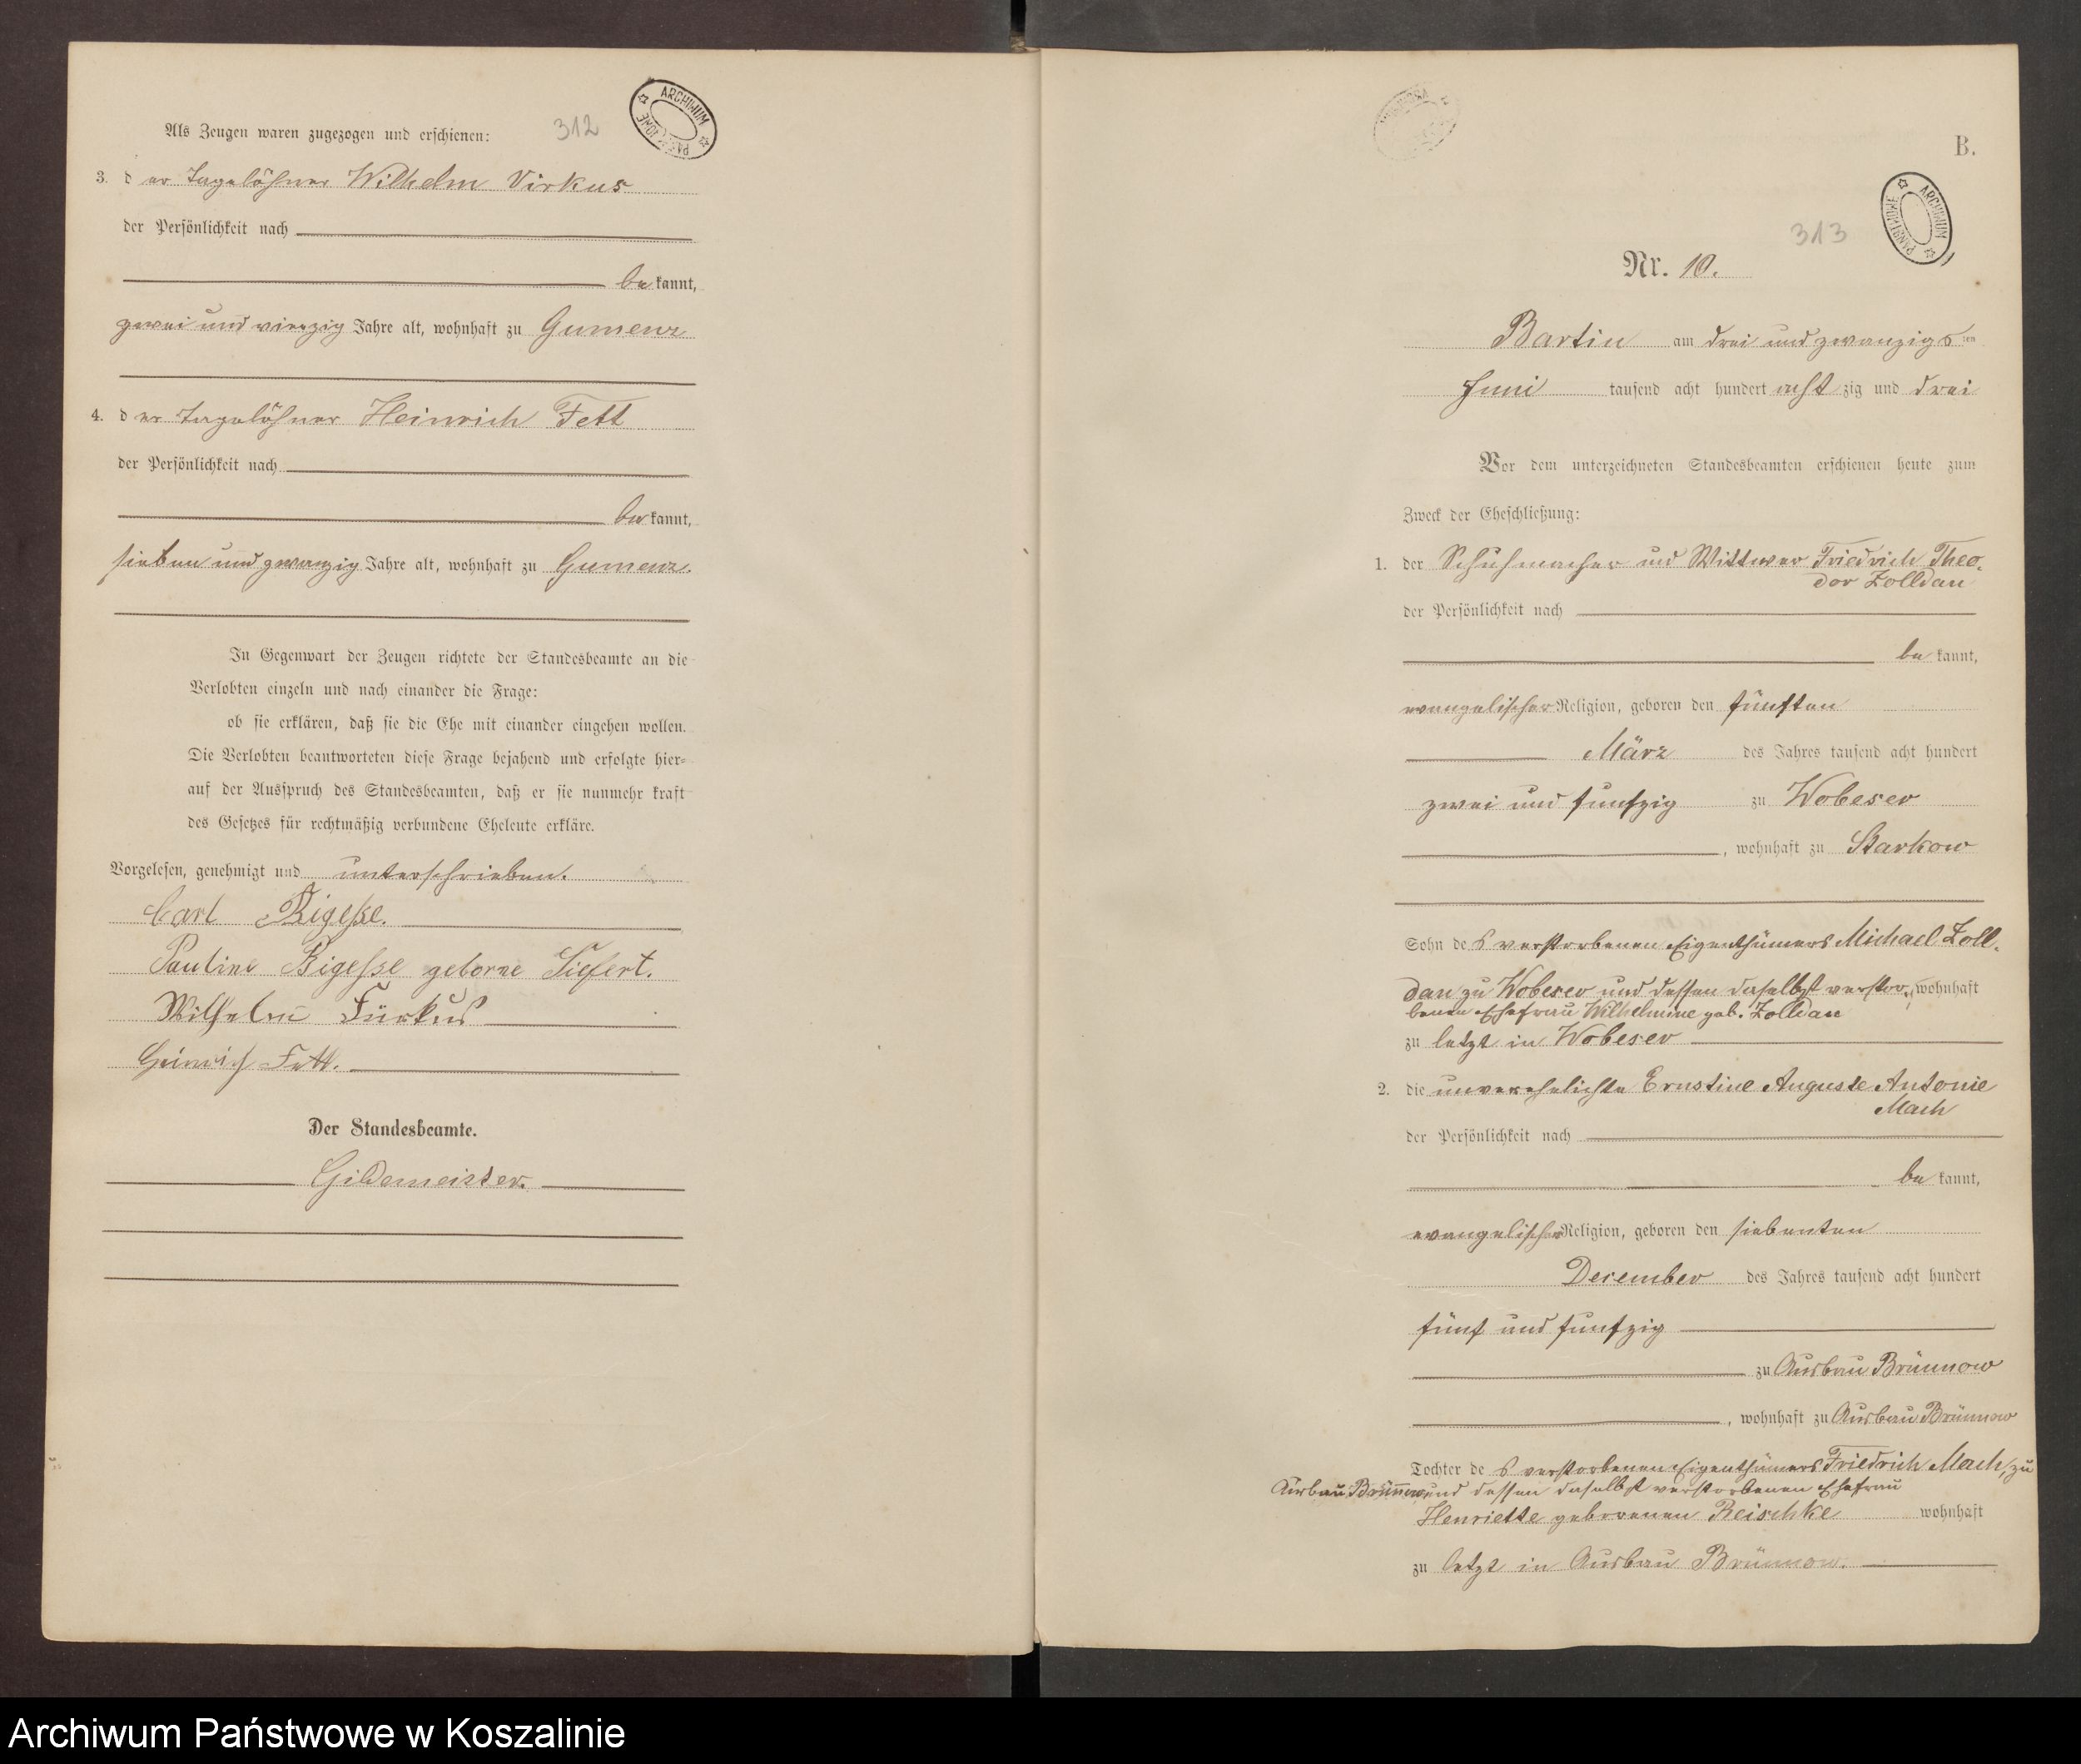 Als Zeugen waren zugezogen und erschienen:
312
ARCHIWUM
3. der Tagelöhner Wilhelm Virkus
der Persönlichkeit nach
bekannt,
zwei und vierzig Jahre alt, wohnhaft zu Gumenz
4. der Tagelöhner Heinrich Fett
der Persönlichkeit nach
bekannt,
sieben und zwanzig Jahre alt, wohnhaft zu Gumenz.
In Gegenwart der Zeugen richtete der Standesbeamte an die
Verlobten einzeln und nach einander die Frage:
ob sie erklären, daß sie die Ehe mit einander eingehen wollen.
Die Verlobten beantworteten diese Frage bejahend und erfolgte hier-
auf der Ausspruch des Standesbeamten, daß er sie nunmehr kraft
des Gesetzes für rechtmäßig verbundene Eheleute erkläre.
Vorgelesen, genehmigt und unterschrieben.
Carl
Pauline geborne Siefert.
Wilhelm Fürkus
Heinrich Fett.
Der Standesbeamte.
Gildemeister.
B.
313
ARCHIWUM PAŃSTWOWE
Nr. 10.
Bartin am drei und zwanzigsten
Juni tausend acht hundert achtzig und drei
Vor dem unterzeichneten Standesbeamten erschienen heute zum
Zweck der Eheschließung:
1. der Schuhmacher und Wittwer Friedrich Theo-
dor Zolldan
der Persönlichkeit nach
bekannt,
evangelischer Religion, geboren den fünften
März des Jahres tausend acht hundert
zwei und funfzig zu Wobeser
, wohnhaft zu Starkow
Sohn des verstorbenen Eigenthümers Michael Zoll-
dan zu Wobeser und dessen daselbst verstor- wohnhaft
benen Ehefrau Wilhelmine geb. Zolldan
zu letzt in Wobeser
2. die unverehelichte Ernstine Auguste Antonie
Mach
der Persönlichkeit nach
bekannt,
evangelischer Religion, geboren den siebenten
Dezember des Jahres tausend acht hundert
fünf und funfzig
zu Ausbau Brünnow
, wohnhaft zu Ausbau Brünnow
Tochter des verstorbenen Eigenthümers Friedrich Mach, zu
Ausbau Brünnow und dessen daselbst verstorbenen Ehefrau
Henriette geborenen Reischke wohnhaft
zu letzt in Ausbau Brünnow.
Archiwum Państwowe w Koszalinie